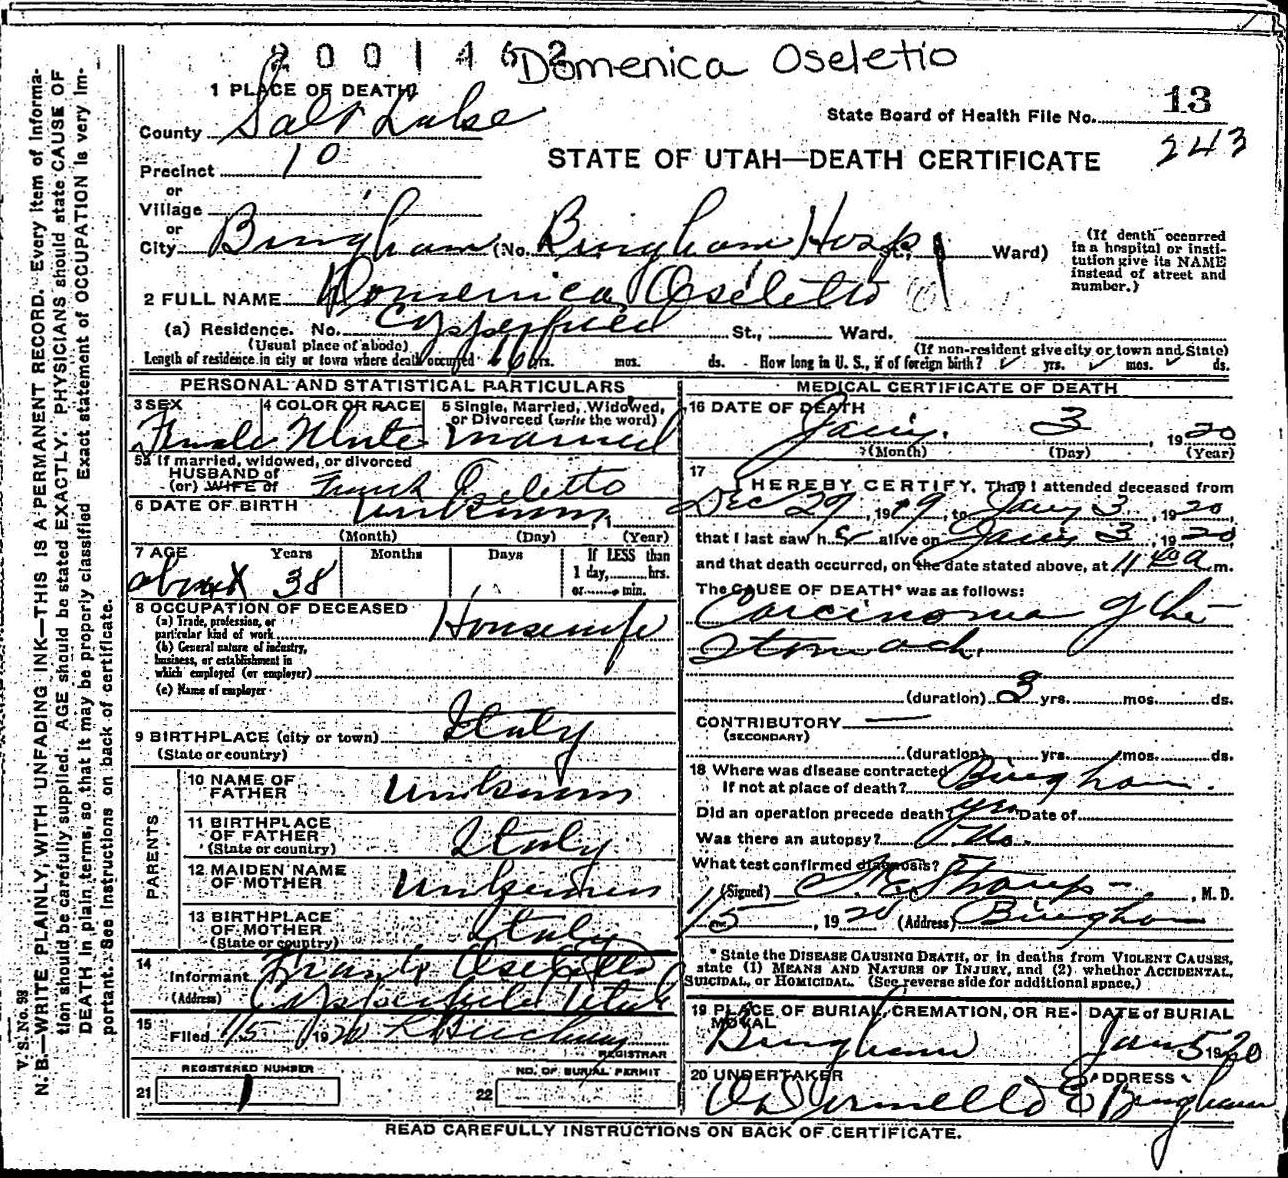 2001452 Domenica Oseletio
1 PLACE OF DEATH
State Board of Health File No. 13
243
County Salt Lake
STATE OF UTAH—DEATH CERTIFICATE
Precinct 10
or
Village
or
City Bingham (No. Bingham Hosp St., Ward)
(If death occurred
in a hospital or insti-
tution give its NAME
instead of street and
number.)
2 FULL NAME Domenica Oseletto
(a) Residence. No. Copperfield St., Ward.
(Usual place of abode) (If non-resident give city or town and State)
Length of residence in city or town where death occurred 6 yrs. mos. ds. How long in U. S., if of foreign birth? yrs. mos. ds.
PERSONAL AND STATISTICAL PARTICULARS
3 SEX 4 COLOR OR RACE 5 Single, Married, Widowed,
or Divorced (write the word)
Female White Married
5a If married, widowed, or divorced
HUSBAND of
(or) WIFE of Frank Oseletto
6 DATE OF BIRTH unknown
(Month) (Day) (Year)
7 AGE Years Months Days If LESS than
1 day, hrs.
or min.
about 38
8 OCCUPATION OF DECEASED
(a) Trade, profession, or
particular kind of work Housewife
(b) General nature of industry,
business, or establishment in
which employed (or employer)
(c) Name of employer
9 BIRTHPLACE (city or town) Italy
(State or country)
PARENTS
10 NAME OF
FATHER Unknown
11 BIRTHPLACE
OF FATHER
(State or country) Italy
12 MAIDEN NAME
OF MOTHER Unknown
13 BIRTHPLACE
OF MOTHER
(State or country) Italy
14
Informant Frank Oseletto
(Address) Copperfield Utah
15
Filed 1/5 1920
REGISTRAR
REGISTERED NUMBER NO. OF BURIAL PERMIT
21 1 22
MEDICAL CERTIFICATE OF DEATH
16 DATE OF DEATH
Jany. 3, 1920
(Month) (Day) (Year)
17
I HEREBY CERTIFY, That I attended deceased from
Dec 29, 1919, to Jany 3, 1920,
that I last saw her alive on Jany 3, 1920
and that death occurred, on the date stated above, at 11 40 a m.
The CAUSE OF DEATH* was as follows:
Carcinoma of the
Stomach.
(duration) 3 yrs. mos. ds.
CONTRIBUTORY —
(SECONDARY)
(duration) yrs. mos. ds.
18 Where was disease contracted
If not at place of death? Bingham.
Did an operation precede death? yes Date of
Was there an autopsy? No.
What test confirmed diagnosis?
(Signed) , M. D.
1/5, 1920 (Address) Bingham
* State the DISEASE CAUSING DEATH, or in deaths from VIOLENT CAUSES,
state (1) MEANS AND NATURE OF INJURY, and (2) whether ACCIDENTAL,
SUICIDAL, or HOMICIDAL. (See reverse side for additional space.)
19 PLACE OF BURIAL, CREMATION, OR RE-
MOVAL DATE of BURIAL
Bingham Jan 5 1920
20 UNDERTAKER ADDRESS
O'Donnell & Bingham
READ CAREFULLY INSTRUCTIONS ON BACK OF CERTIFICATE.
V. S. No. 98
N. B.—WRITE PLAINLY, WITH UNFADING INK—THIS IS A PERMANENT RECORD. Every item of informa-
tion should be carefully supplied. AGE should be stated EXACTLY. PHYSICIANS should state CAUSE OF
DEATH in plain terms, so that it may be properly classified. Exact statement of OCCUPATION is very im-
portant. See instructions on back of certificate.